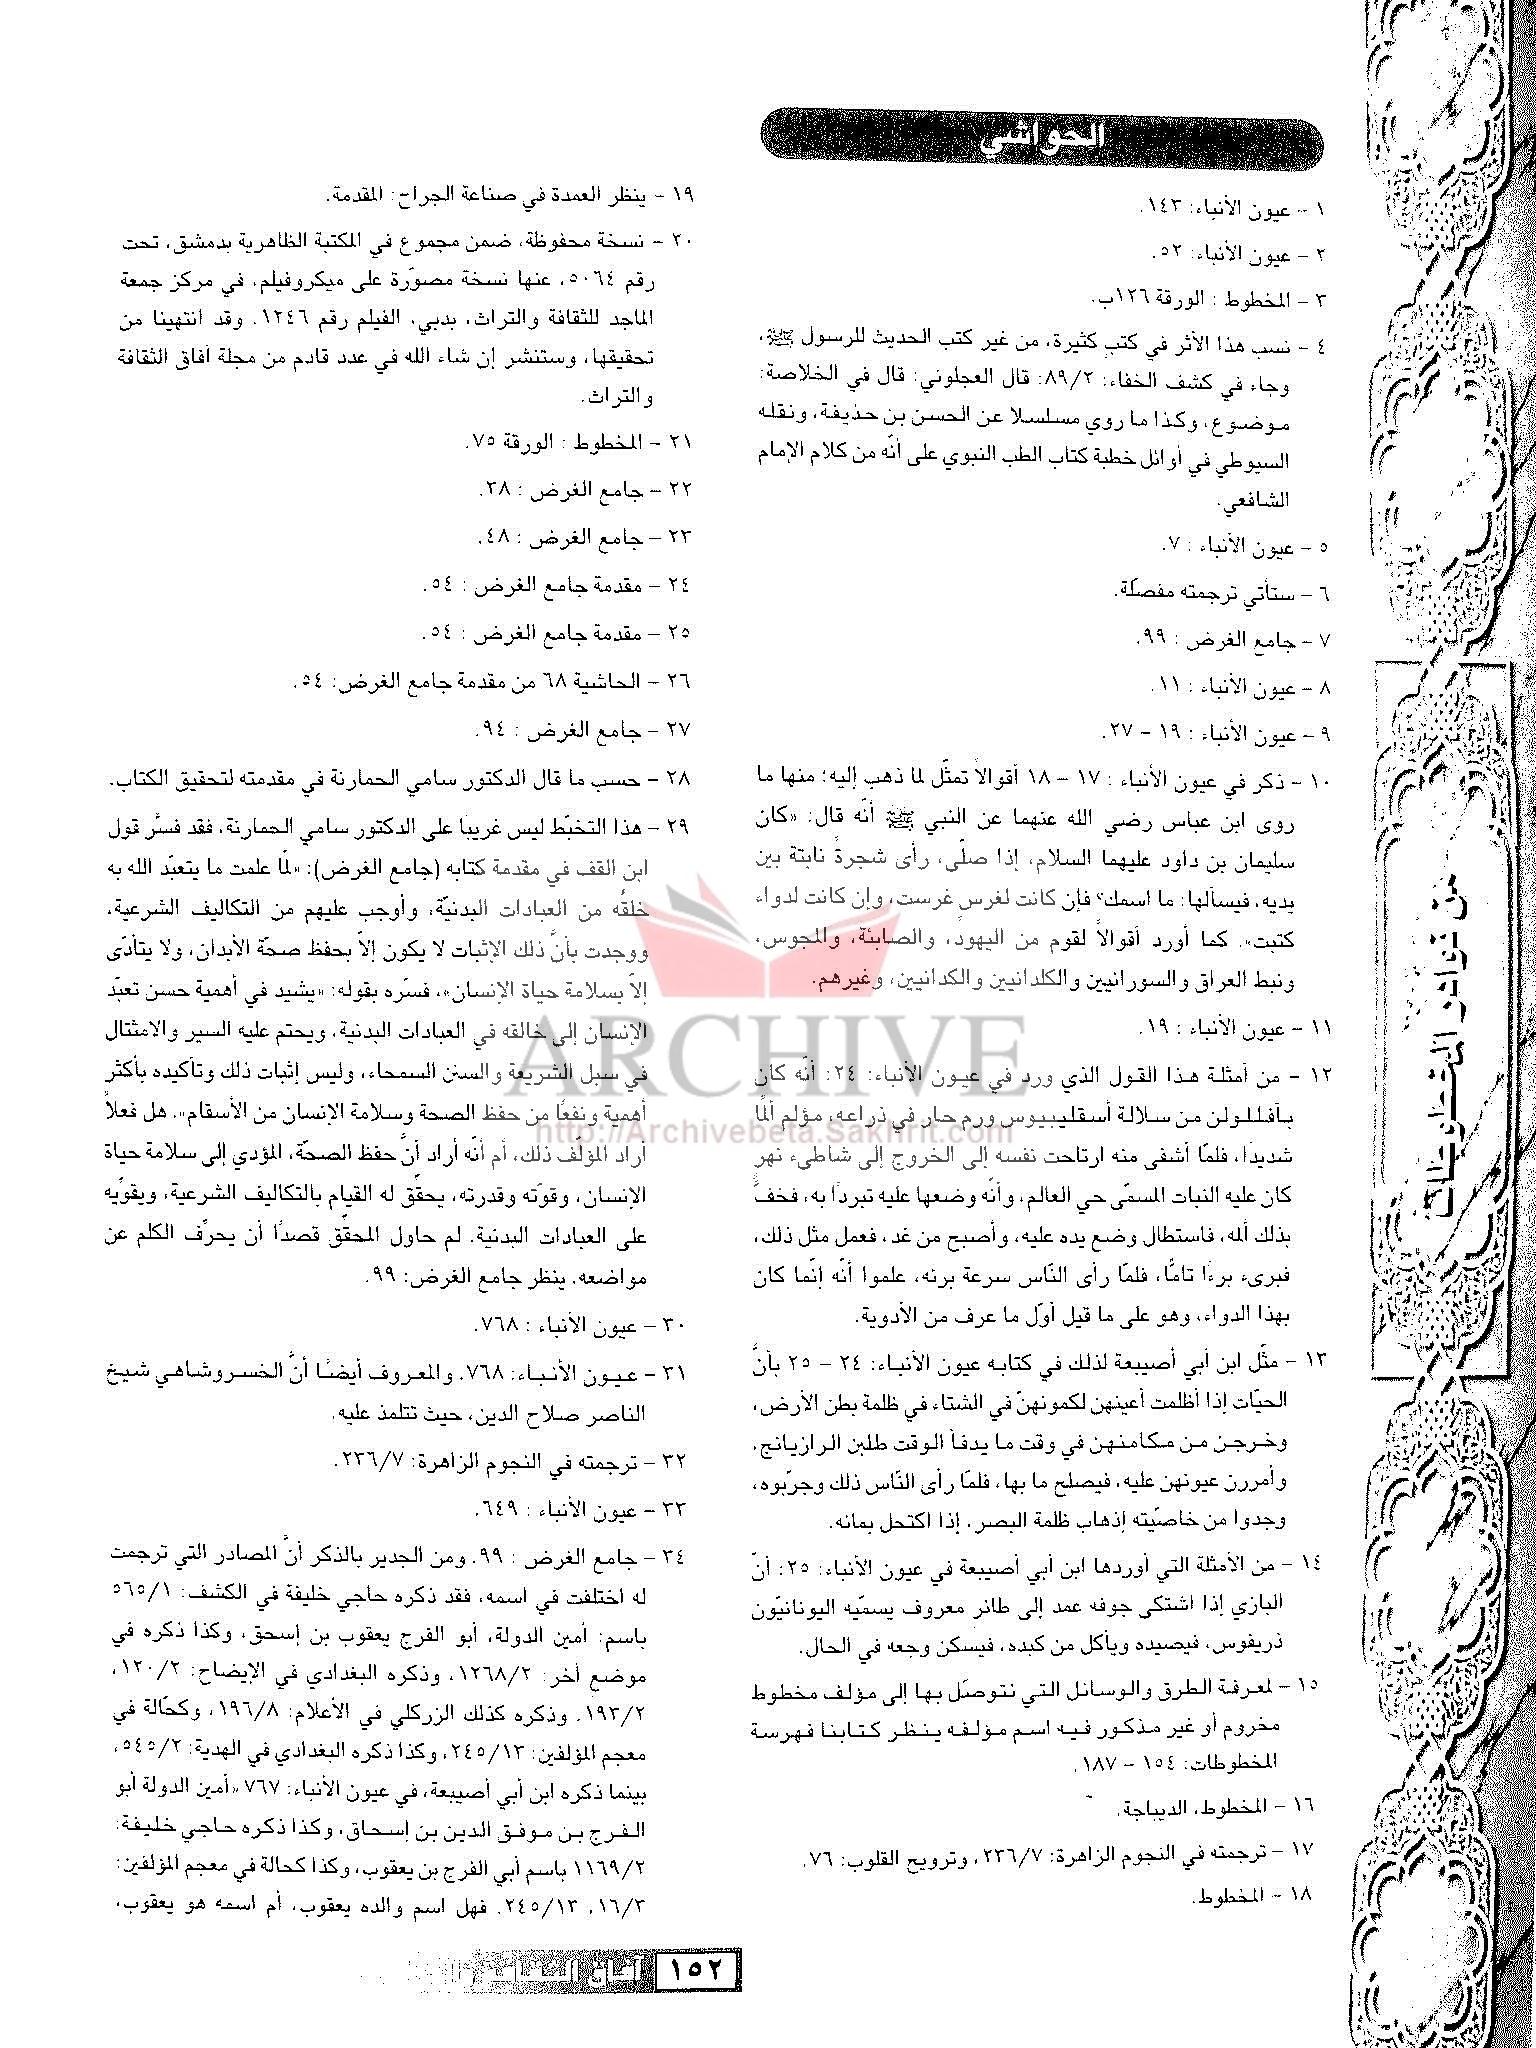 الحواشي
١ - عيون الأنباء: ١٤٣.
٢ - عيون الأنباء: ٥٢.
٣ - المخطوط : الورقة ١٢٦ب.
٤ - نسب هذا الأثر في كتب كثيرة، من غير كتب الحديث للرسول ﷺ،
وجاء في كشف الخفاء: ٨٩/٢: قال العجلوني: قال في الخلاصة:
موضوع، وكذا ما روي مسلسلا عن الحسن بن حذيفة، ونقله
السيوطي في أوائل خطبة كتاب الطب النبوي على أنّه من كلام الإمام
الشافعي.
٥ - عيون الأنباء : ٧.
٦ - ستأتي ترجمته مفصلّة.
٧ - جامع الغرض : ٩٩.
٨ - عيون الأنباء : ١١.
٩ - عيون الأنباء : ١٩ - ٢٧.
١٠ - ذكر في عيون الأنباء : ١٧ - ١٨ أقوالاً تمثّل لما ذهب إليه؛ منها ما
روى ابن عباس رضي الله عنهما عن النبي ﷺ أنّه قال: «كان
سليمان بن داود عليهما السلام، إذا صلّى، رأى شجرةً نابتة بين
يديه، فيسألها: ما اسمك؟ فإن كانت لغرسٍ غرست، وإن كانت لدواء
كتبت». كما أورد أقوالاً لقوم من اليهود، والصابئة، والمجوس،
ونبط العراق والسورانيين والكلدانيين والكدانيين، وغيرهم.
١١ - عيون الأنباء : ١٩.
١٢ - من أمثلة هذا القول الذي ورد في عيون الأنباء: ٢٤: أنّه كان
بأفللولن من سلالة أسقليبيوس ورم حار في ذراعه، مؤلم ألمًا
شديدًا، فلمّا أشفى منه ارتاحت نفسه إلى الخروج إلى شاطىء نهر
كان عليه النبات المسمّى حي العالم، وأنّه وضعها عليه تبردًا به، فخفّ
بذلك ألمه، فاستطال وضع يده عليه، وأصبح من غد، فعمل مثل ذلك،
فبرىء برءًا تامًّا، فلمّا رأى النّاس سرعة برئه، علموا أنّه إنّما كان
بهذا الدواء، وهو على ما قيل أوّل ما عرف من الأدوية.
١٣ - مثّل ابن أبي أصيبعة لذلك في كتابه عيون الأنباء: ٢٤ - ٢٥ بأنَّ
الحيّات إذا أظلمت أعينهن لكمونهنّ في الشتاء في ظلمة بطن الأرض،
وخرجن من مكامنهن في وقت ما يدفأ الوقت طلبن الرازيانج،
وأمررن عيونهن عليه، فيصلح ما بها، فلمّا رأى النّاس ذلك وجرّبوه،
وجدوا من خاصّيته إذهاب ظلمة البصر، إذا اكتحل بمائه.
١٤ - من الأمثلة التي أوردها ابن أبي أصيبعة في عيون الأنباء: ٢٥: أنّ
البازي إذا اشتكى جوفه عمد إلى طائر معروف يسمّيه اليونانيّون
ذريفوس، فيصيده ويأكل من كبده، فيسكن وجعه في الحال.
١٥ - لمعرفة الطرق والوسائل التي نتوصّل بها إلى مؤلف مخطوط
مخروم أو غير مذكور فيه اسم مؤلفه ينظر كتابنا فهرسة
المخطوطات: ١٥٤ - ١٨٧.
١٦ - المخطوط، الديباجة.
١٧ - ترجمته في النجوم الزاهرة: ٢٣٦/٧، وترويح القلوب: ٧٦.
١٨ - المخطوط.
١٩ - ينظر العمدة في صناعة الجراح: المقدمة.
٢٠ - نسخة محفوظة، ضمن مجموع في المكتبة الظاهرية بدمشق، تحت
رقم ٥٠٦٤، عنها نسخة مصوّرة على ميكروفيلم، في مركز جمعة
الماجد للثقافة والتراث، بدبي، الفيلم رقم ١٢٤٦. وقد انتهينا من
تحقيقها، وستنشر إن شاء الله في عدد قادم من مجلة آفاق الثقافة
والتراث.
٢١ - المخطوط : الورقة ٧٥.
٢٢ - جامع الغرض : ٣٨.
٢٣ - جامع الغرض : ٤٨.
٢٤ - مقدمة جامع الغرض : ٥٤.
٢٥ - مقدمة جامع الغرض : ٥٤.
٢٦ - الحاشية ٦٨ من مقدمة جامع الغرض: ٥٤.
٢٧ - جامع الغرض : ٩٤.
٢٨ - حسب ما قال الدكتور سامي الحمارنة في مقدمته لتحقيق الكتاب.
٢٩ - هذا التخبّط ليس غريبًا على الدكتور سامي الحمارنة، فقد فسَّر قول
ابن القف في مقدمة كتابه (جامع الغرض): «لمّا علمت ما يتعبّد الله به
خلقُه من العبادات البدنيّة، وأوجب عليهم من التكاليف الشرعية،
ووجدت بأنَّ ذلك الإثبات لا يكون إلاّ بحفظ صحّة الأبدان، ولا يتأدّى
إلاّ بسلامة حياة الإنسان»، فسّره بقوله: «يشيد في أهمية حسن تعبّد
الإنسان إلى خالقه في العبادات البدنية، ويحتم عليه السير والامتثال
في سبل الشريعة والسنن السمحاء، وليس إثبات ذلك وتأكيده بأكثر
أهمية ونفعًا من حفظ الصحة وسلامة الإنسان من الأسقام». هل فعلاً
أراد المؤلّف ذلك، أم أنّه أراد أنَّ حفظ الصحّة، المؤدي إلى سلامة حياة
الإنسان، وقوّته وقدرته، يحقّق له القيام بالتكاليف الشرعية، ويقوّيه
على العبادات البدنية. لم حاول المحقّق قصدًا أن يحرِّف الكلم عن
مواضعه. ينظر جامع الغرض: ٩٩.
٣٠ - عيون الأنباء : ٧٦٨.
٣١ - عيون الأنباء: ٧٦٨. والمعروف أيضًا أنَّ الخسروشاهي شيخ
الناصر صلاح الدين، حيث تتلمذ عليه.
٣٢ - ترجمته في النجوم الزاهرة: ٢٣٦/٧.
٣٣ - عيون الأنباء : ٦٤٩.
٣٤ - جامع الغرض : ٩٩. ومن الجدير بالذكر أنَّ المصادر التي ترجمت
له اختلفت في اسمه، فقد ذكره حاجي خليفة في الكشف: ٥٦٥/١
باسم: أمين الدولة، أبو الفرج يعقوب بن إسحق، وكذا ذكره في
موضع آخر: ١٢٦٨/٢، وذكره البغدادي في الإيضاح: ١٢٠/٢،
١٩٣/٢. وذكره كذلك الزركلي في الأعلام: ١٩٦/٨، وكحّالة في
معجم المؤلفين: ٢٤٥/١٣، وكذا ذكره البغدادي في الهدية: ٥٤٥/٢،
بينما ذكره ابن أبي أصيبعة، في عيون الأنباء: ٧٦٧ «أمين الدولة أبو
الفرج بن موفق الدين بن إسحاق، وكذا ذكره حاجي خليفة:
١١٦٩/٢ باسم أبي الفرج بن يعقوب، وكذا كحالة في معجم المؤلفين:
١٦/٣، ٢٤٥/١٣. فهل اسم والده يعقوب، أم اسمه هو يعقوب،
من نوادر المخطوطات
ARCHIVE
http://Archivebeta.Sakhrit.com
١٥٢
آفاق الثقافة